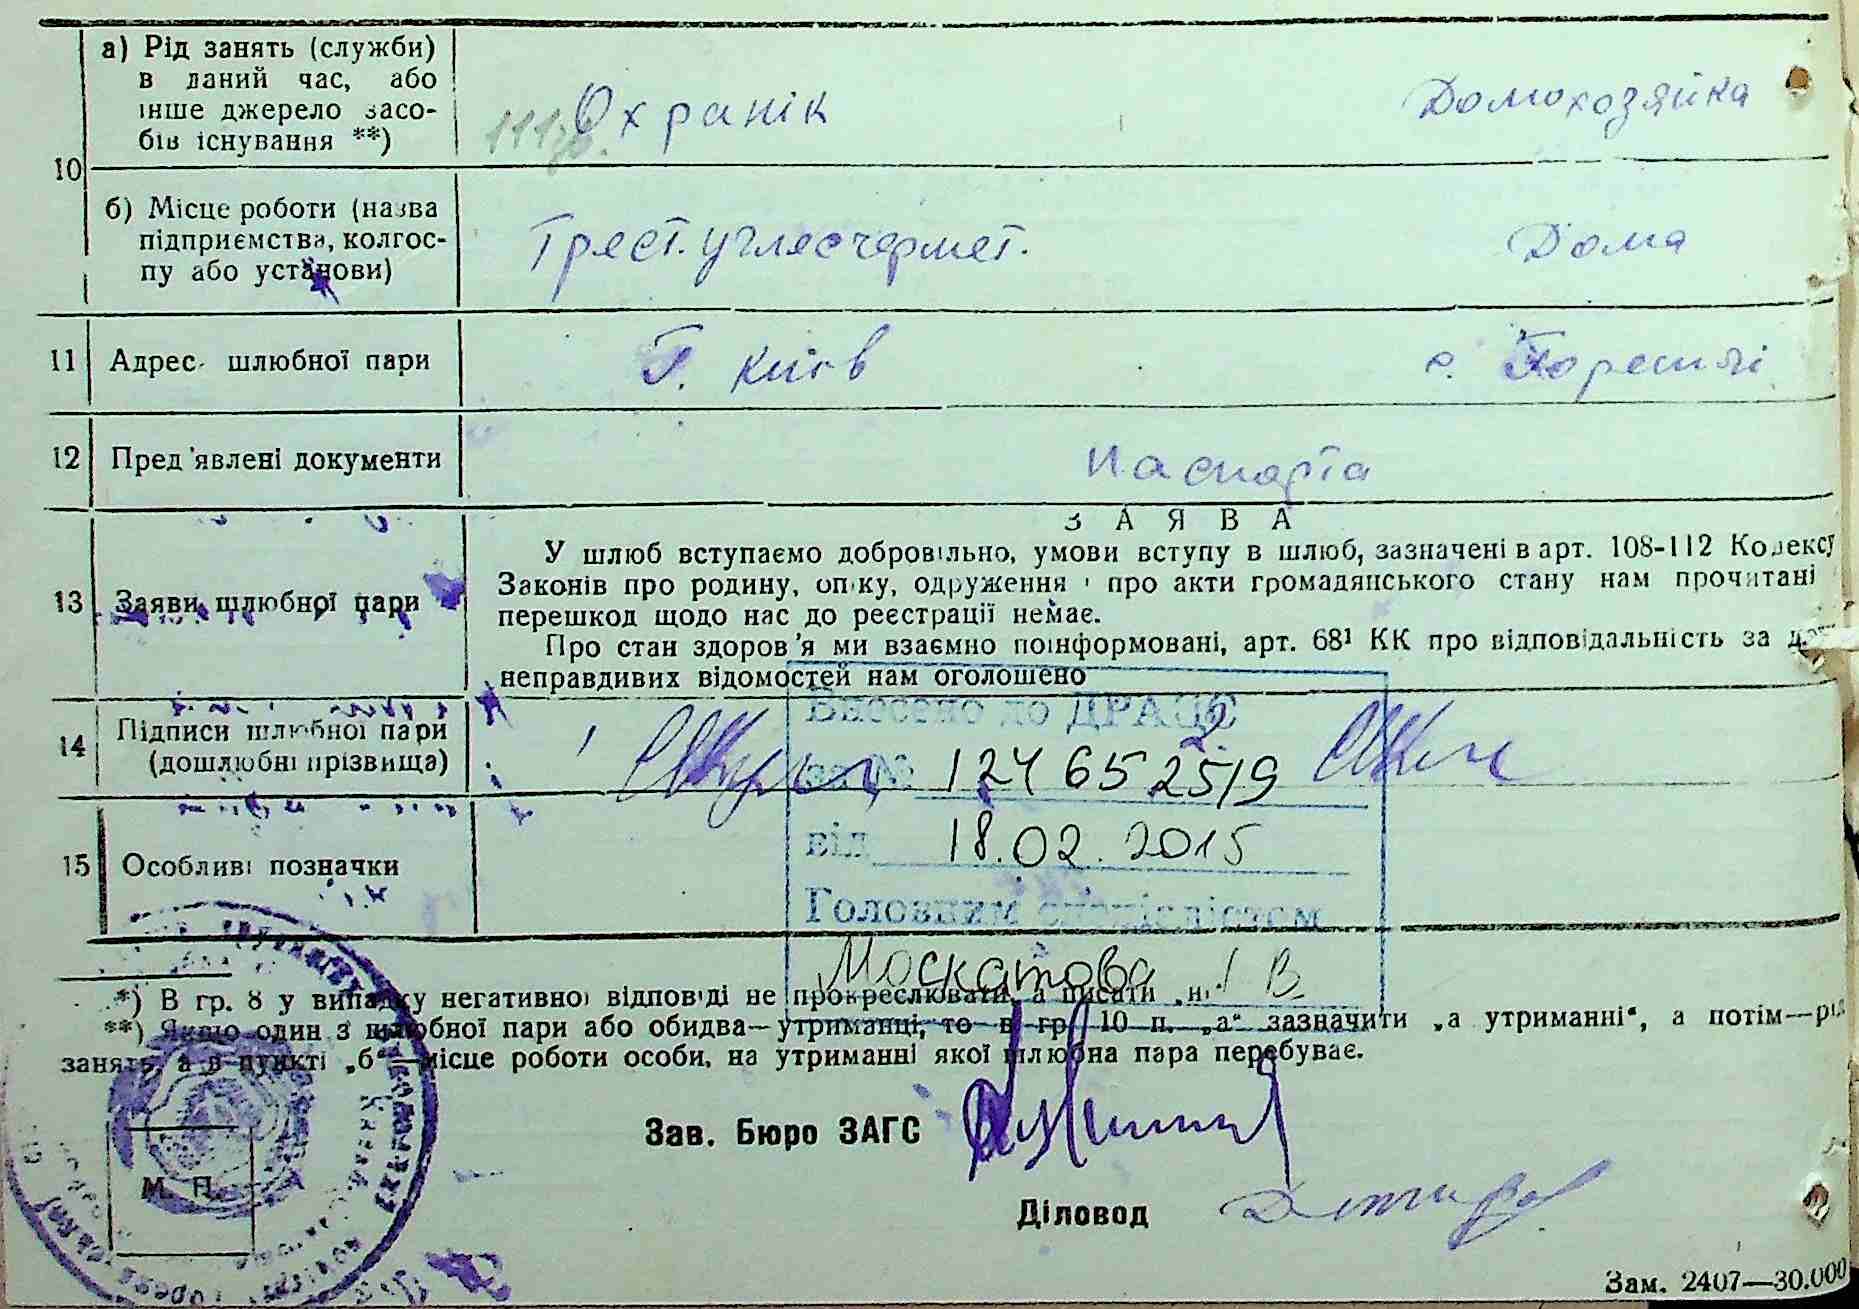 а) Рід занять (служби)
в даний час, або
інше джерело засо-
бів існування **)
Охранік
Домохозяйка
10
б) Місце роботи (назва
підприємства, колгос-
пу або установи)
Трест.
Дома
11 Адрес шлюбної пари
Г. Київ
с.
12 Пред'явлені документи
Паспорта
13 Заяви шлюбної пари
ЗАЯВА
У шлюб вступаємо добровільно, умови вступу в шлюб, зазначені в арт. 108-112 Кодексу
Законів про родину, опіку, одруження і про акти громадянського стану нам прочитані
перешкод щодо нас до реєстрації немає.
Про стан здоров'я ми взаємно поінформовані, арт. 68¹ КК про відповідальність за
неправдивих відомостей нам оголошено
14 Підписи шлюбної пари
(дошлюбні прізвища)
Внесено до ДРАЦС
за №
від 18.02.2015
Головним спеціалістом
Москатова В.
15 Особливі позначки
*) В гр. 8 у випадку негативної відповіді не прокреслювати, а писати „ні“
**) Якщо один з шлюбної пари або обидва—утриманці, то в гр. 10 п. „а“ зазначити „а утриманні“, а потім—рід
занять, а в пункті „б“—місце роботи особи, на утриманні якої шлюбна пара перебуває.
Зав. Бюро ЗАГС
М. П.
Діловод
Зам. 2407—30.000